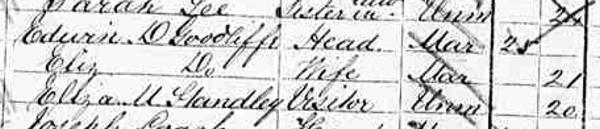 Sarah Lee Sister in law Unm 24
Edwin D Goodliffe Head Mar 25
Eliz Do Wife Mar 21
Eliza M Standley Visitor Unm 20
Joseph